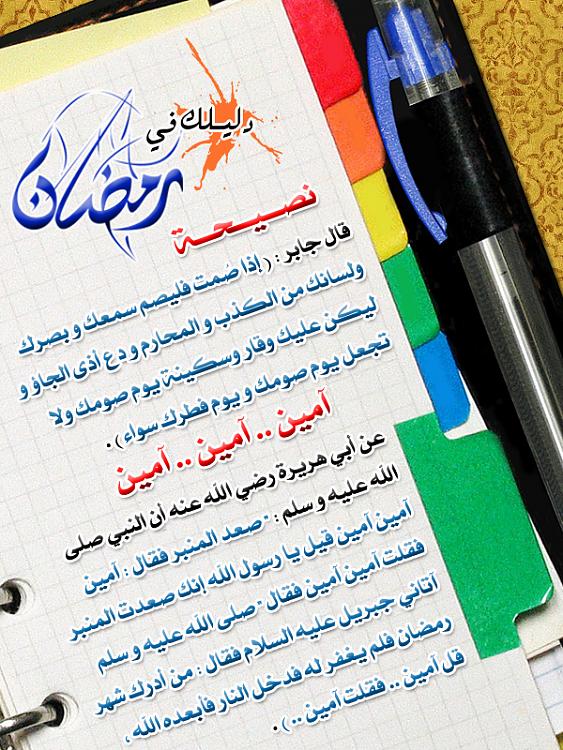 دليلك في
رمضان
نصيحة
قال جابر : ( إذا صمت فليصم سمعك و بصرك
ولسانك من الكذب و المحارم و دع أذى الجاؤ و
ليكن عليك وقار وسكينة يوم صومك ولا
تجعل يوم صومك و يوم فطرك سواء ) .
آمين .. آمين .. آمين
عن أبي هريرة رضي الله عنه أن النبي صلى
الله عليه و سلم : " صعد المنبر فقال : آمين
آمين آمين قيل يا رسول الله إنك صعدت المنبر
فقلت آمين آمين فقال " صلى الله عليه و سلم
آتاني جبريل عليه السلام فقال : من أدرك شهر
رمضان فلم يغفر له فدخل النار فأبعده الله ,
قل آمين .. فقلت آمين .. ) .